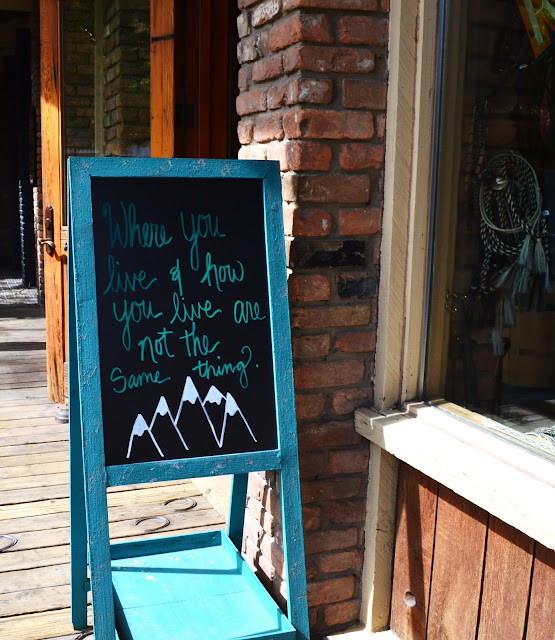 Where you
live & how
you live are
not the
same thing.